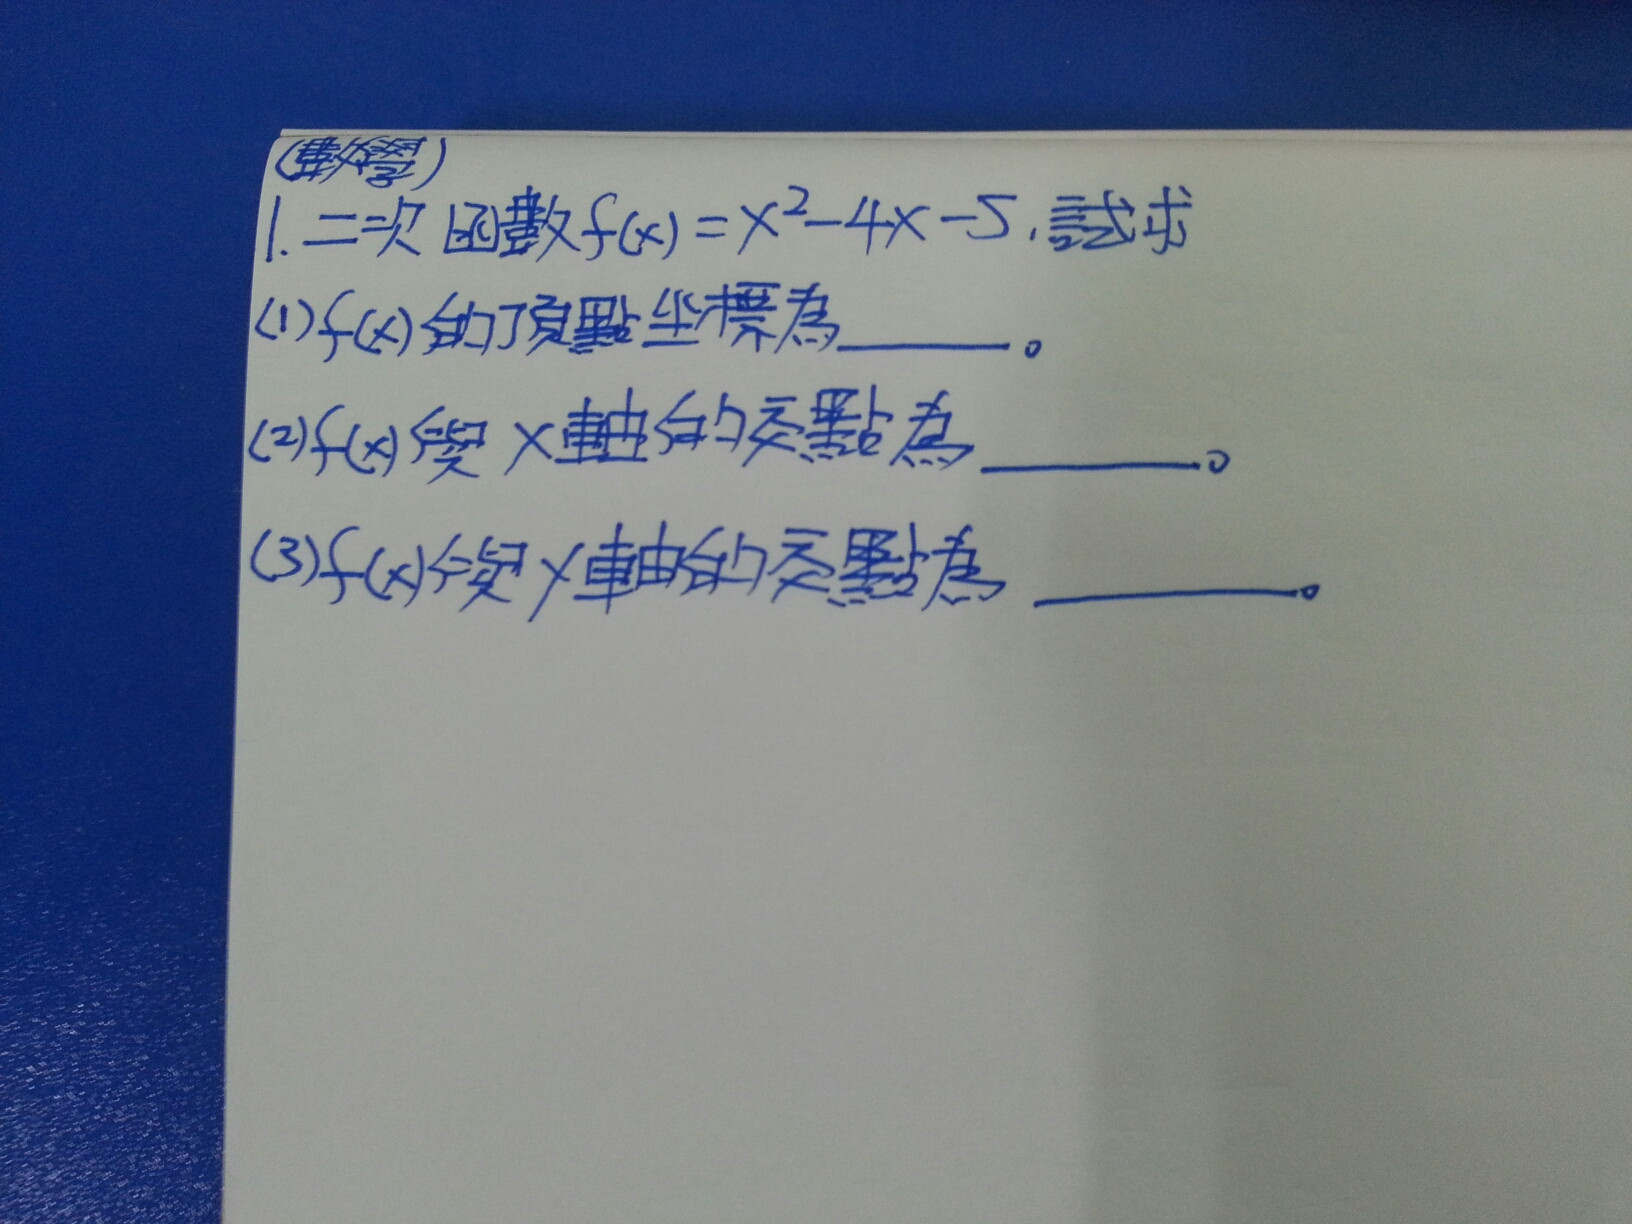 (數學)
1.二次函數f(x)=x²-4x-5,試求
(1)f(x)的頂點坐標為______。
(2)f(x)與x軸的交點為______。
(3)f(x)與y軸的交點為______。